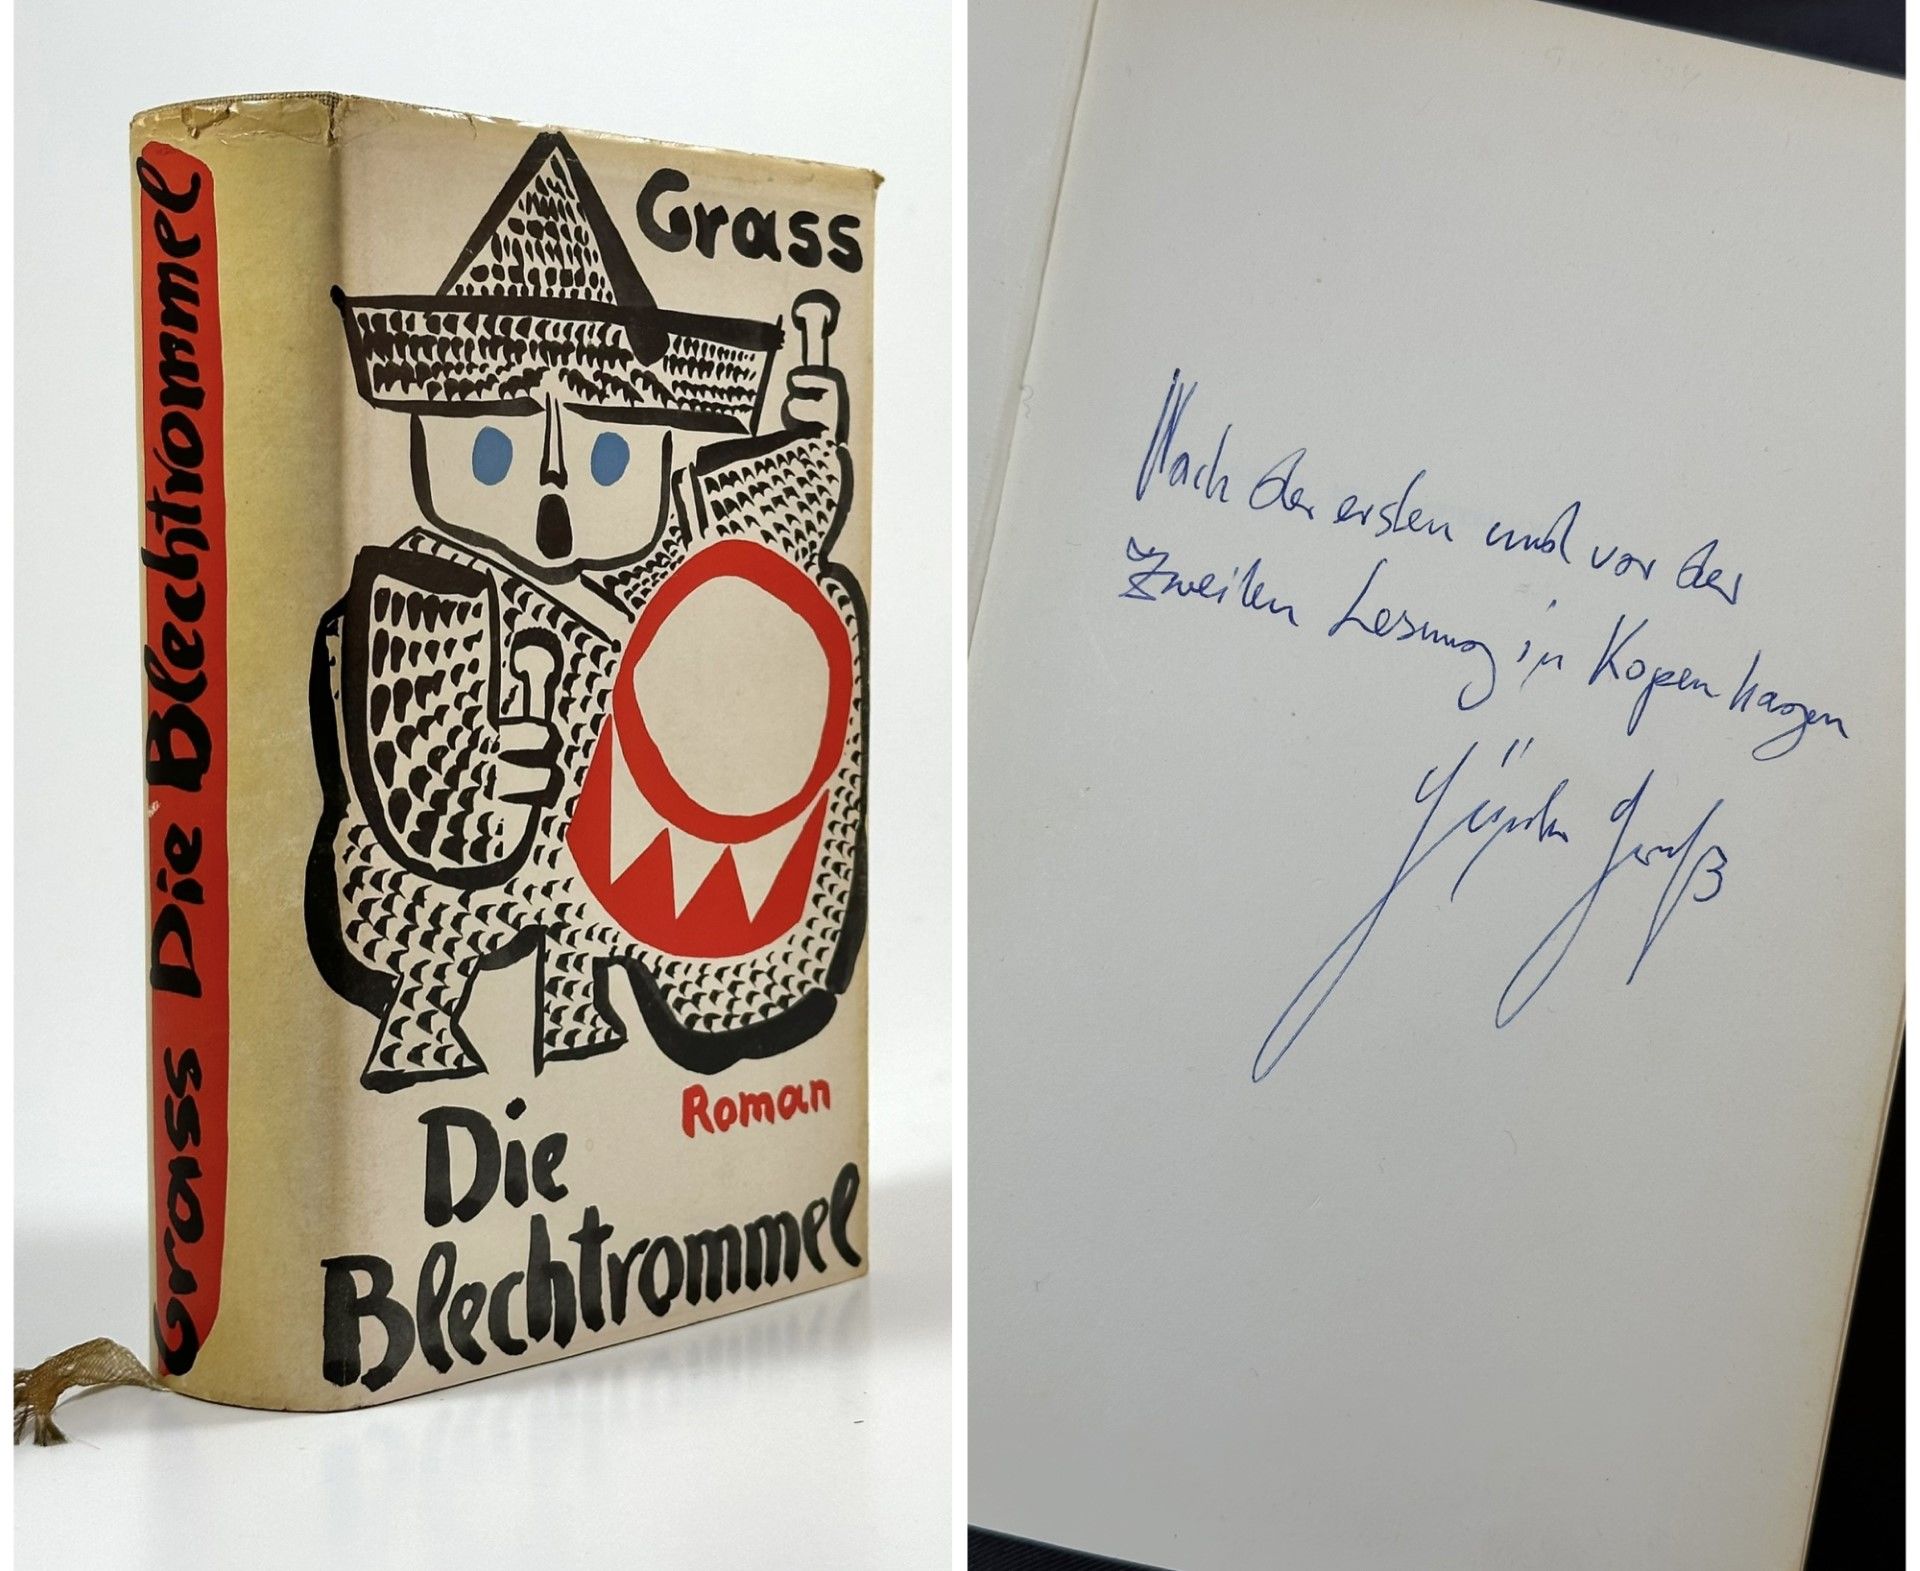 Grass Die Blechtrommel
Grass
Roman
Die
Blechtrommel
Nach der ersten und vor der
Zweiten Lesung in Kopenhagen
Günter Graß